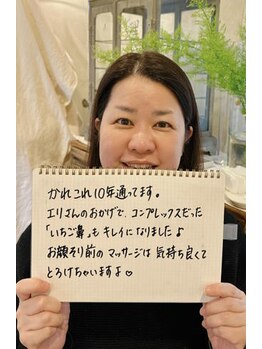 かれこれ10年通ってます。
エリさんのおかげで、コンプレックスだった
「いちご鼻」も キレイになりました♪
お顔そり前の マッサージは 気持ち良くて
とろけちゃいますよ♡